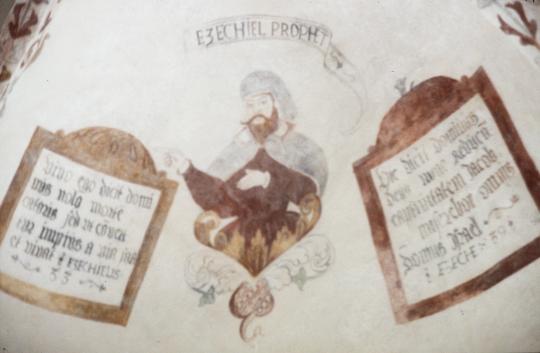 EZECHIEL PROPHT
Vivo ego dicit domi
nus nolo morte
sed ut conver
tatur impius a via sua
et vivat EZECHIELIS
33
dicit dominus
deus
captivitatem Jacob
miserebor omnis
domus Israel
EZECH 39